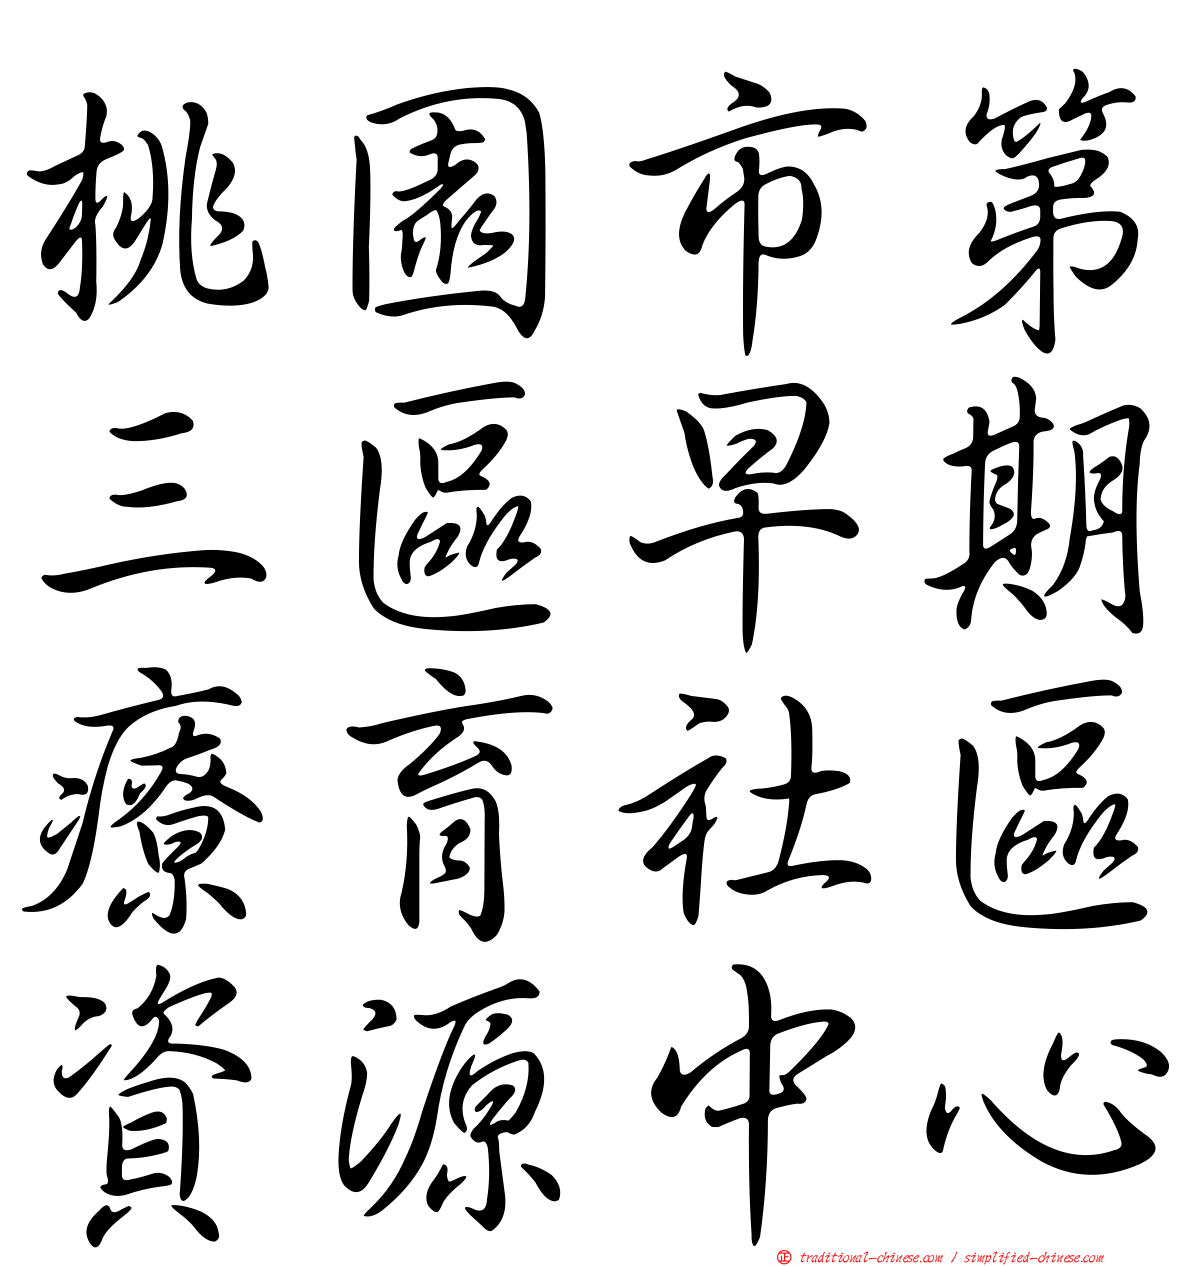 桃園市第
三區早期
療育社區
資源中心
正 traditional-chinese.com / simplified-chinese.com